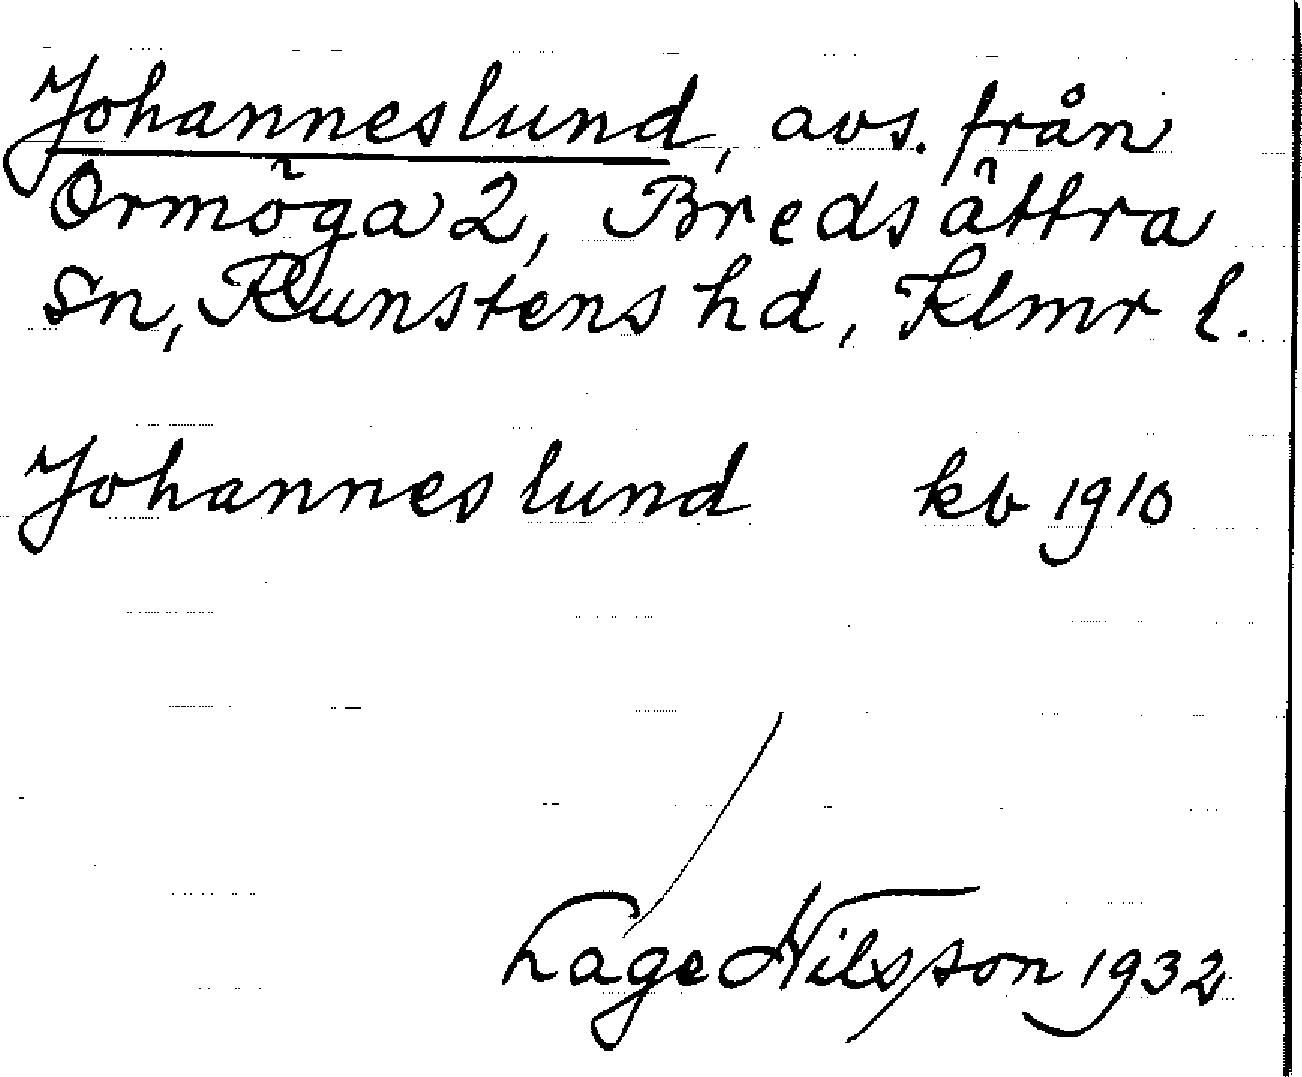 Johanneslund, avs. från
Ormöga 2, Bredsättra
Sn, Runstens hd, Klmr l.
Johanneslund kb 1910
Lage Nilsson 1932